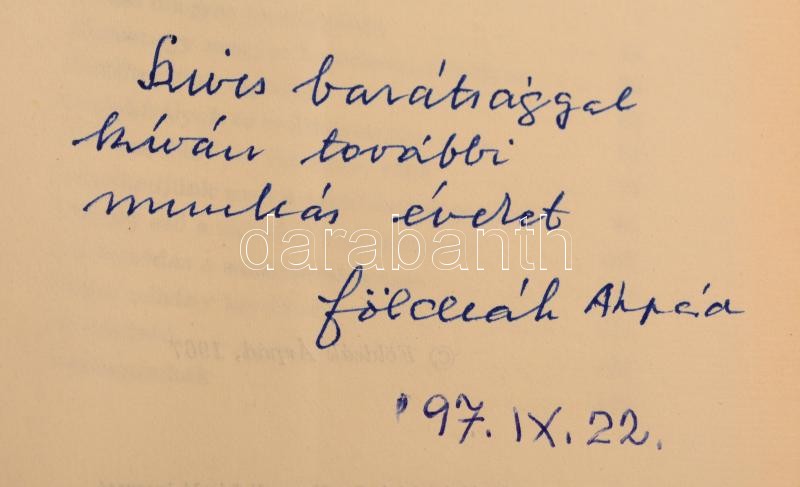 Szives barátsággal
kíván további
munkás éveket
darabanth
Földeák Árpád
© Földeák Árpád, 1967
'97. IX. 22.